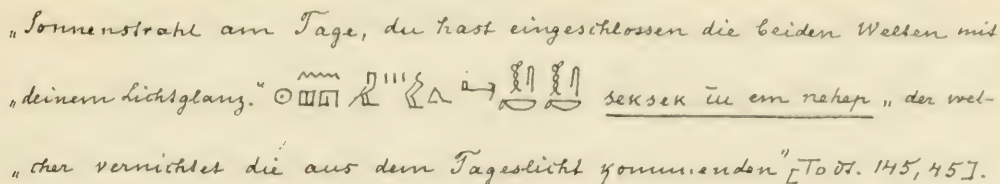 „Sonnenstrahl am Tage, du hast eingeschlossen die beiden Welten mit
„deinem Lichtglanz.“ seksek īu em nehep „der wel-
„cher vernichtet die aus dem Tageslicht kommenden“ [Todt. 145, 45].